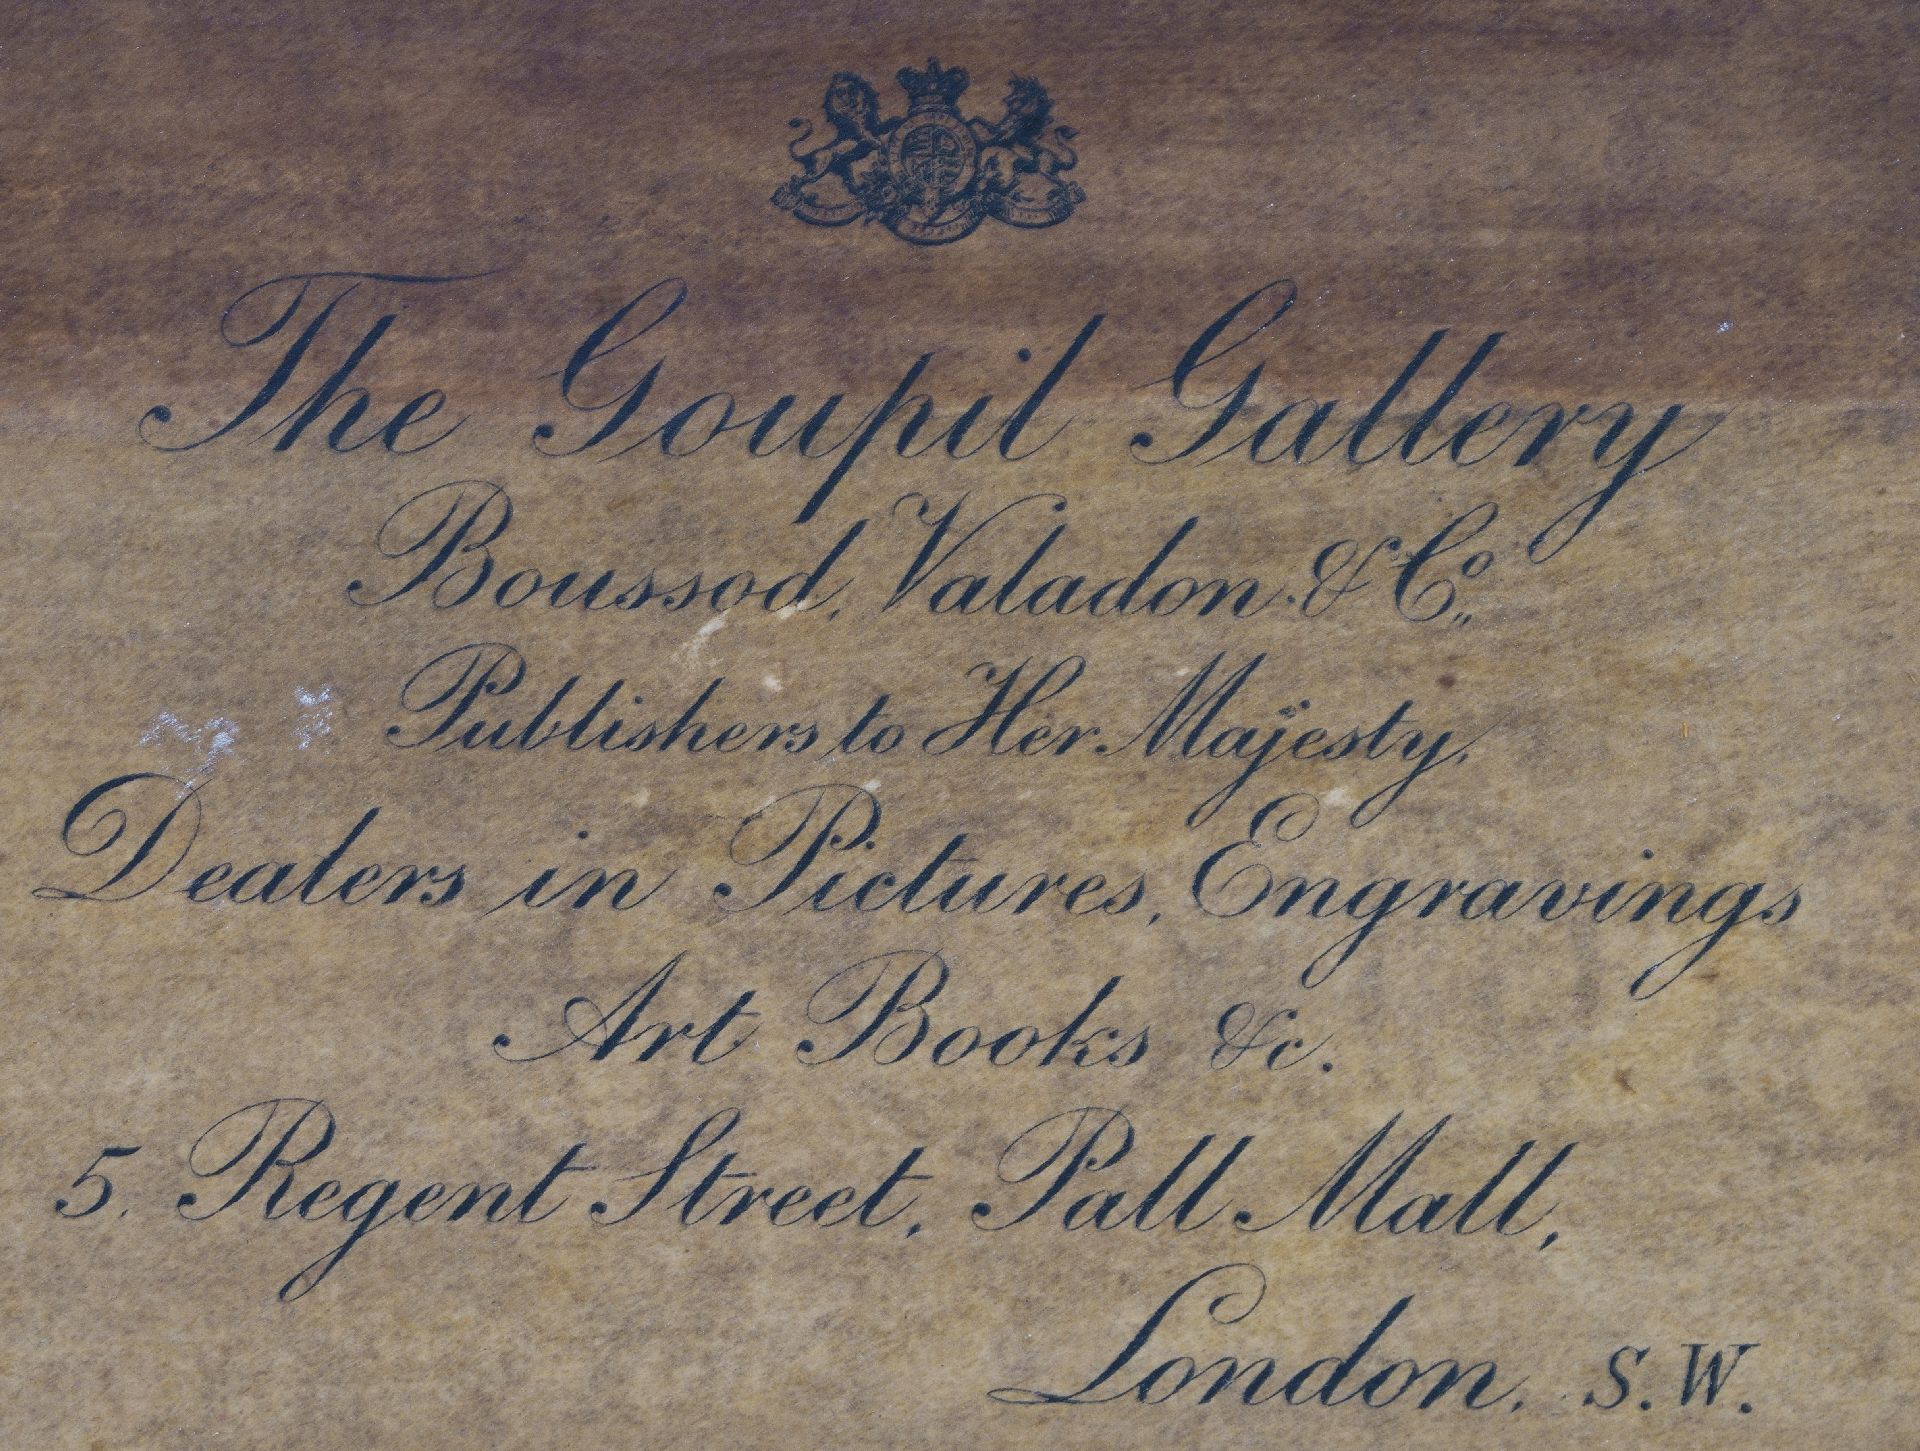 The Goupil Gallery
Boussod, Valadon & Co.,
Publishers to Her Majesty,
Dealers in Pictures, Engravings
Art Books &c.
5, Regent Street, Pall Mall,
London, S.W.